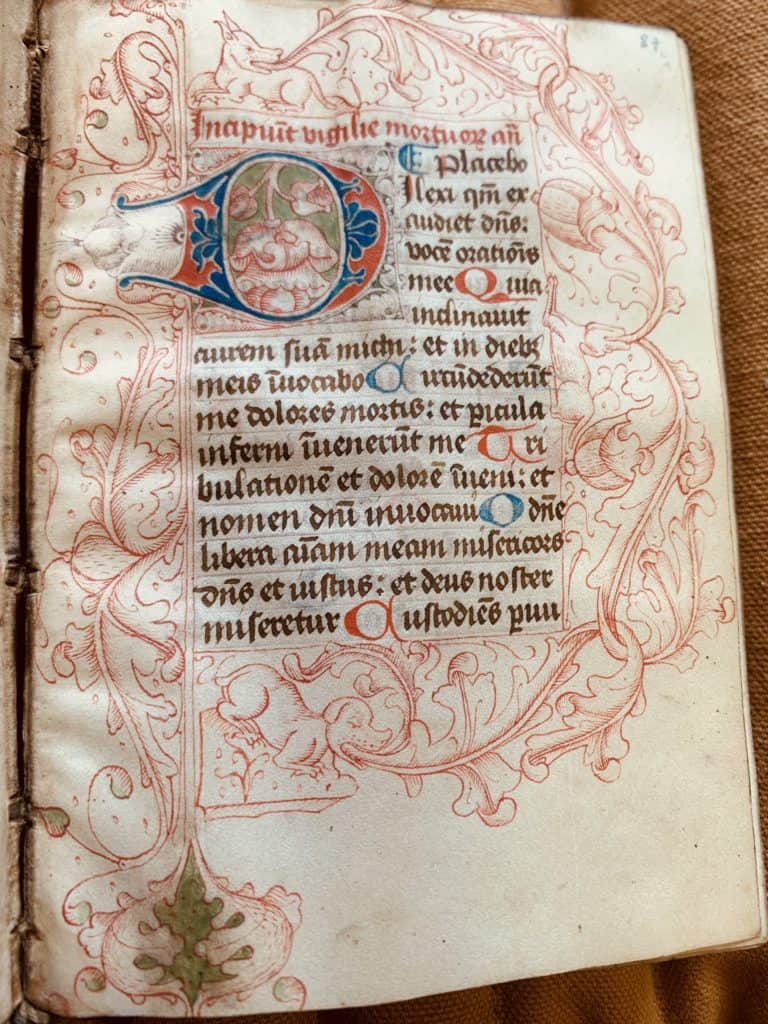 Incipiūt vigilie mortuoꝝ an̄
E Placebo
DIlexi qm̄ ex
audiet dn̄s:
vocē oratiōis
mee Quia
inclinauit
aurem suā michi: et in diebꝫ
meis īuocabo Circūdederūt
me dolores mortis: et ꝑicula
inferni īuenerūt me Tri
bulationē et dolorē īueni: et
nomen dn̄i inuocaui O dn̄e
libera aīam meam misericors
dn̄s et iustus: et deus noster
miseretur Custodiēs ꝑuu